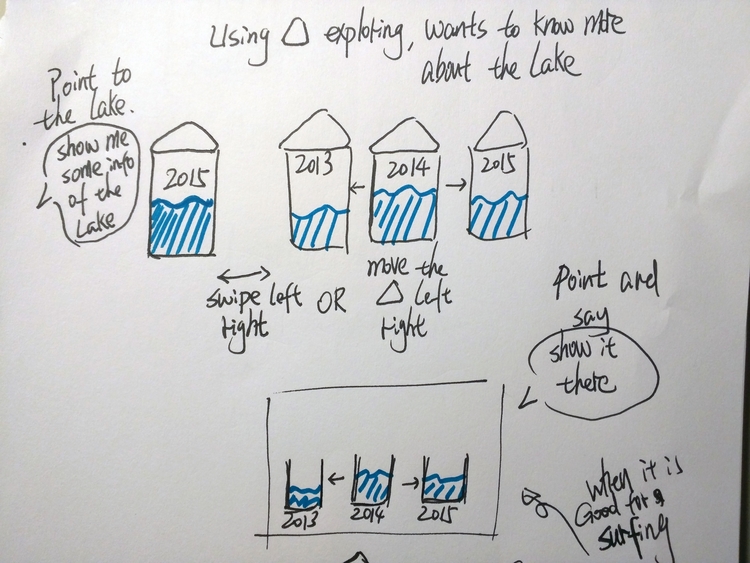 Using △ exploring, wants to know more
about the Lake
Point to
the Lake.
show me
some info
of the
Lake
2015
2013
2014
2015
swipe left
right
OR
move the
△ left
right
Point and
say
show it
there
2013
2014
2015
when it is
Good for
surfing